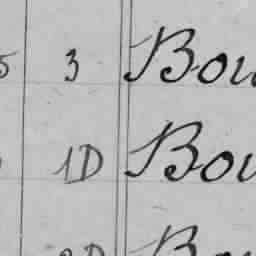 5 3 Bou
1D Bou